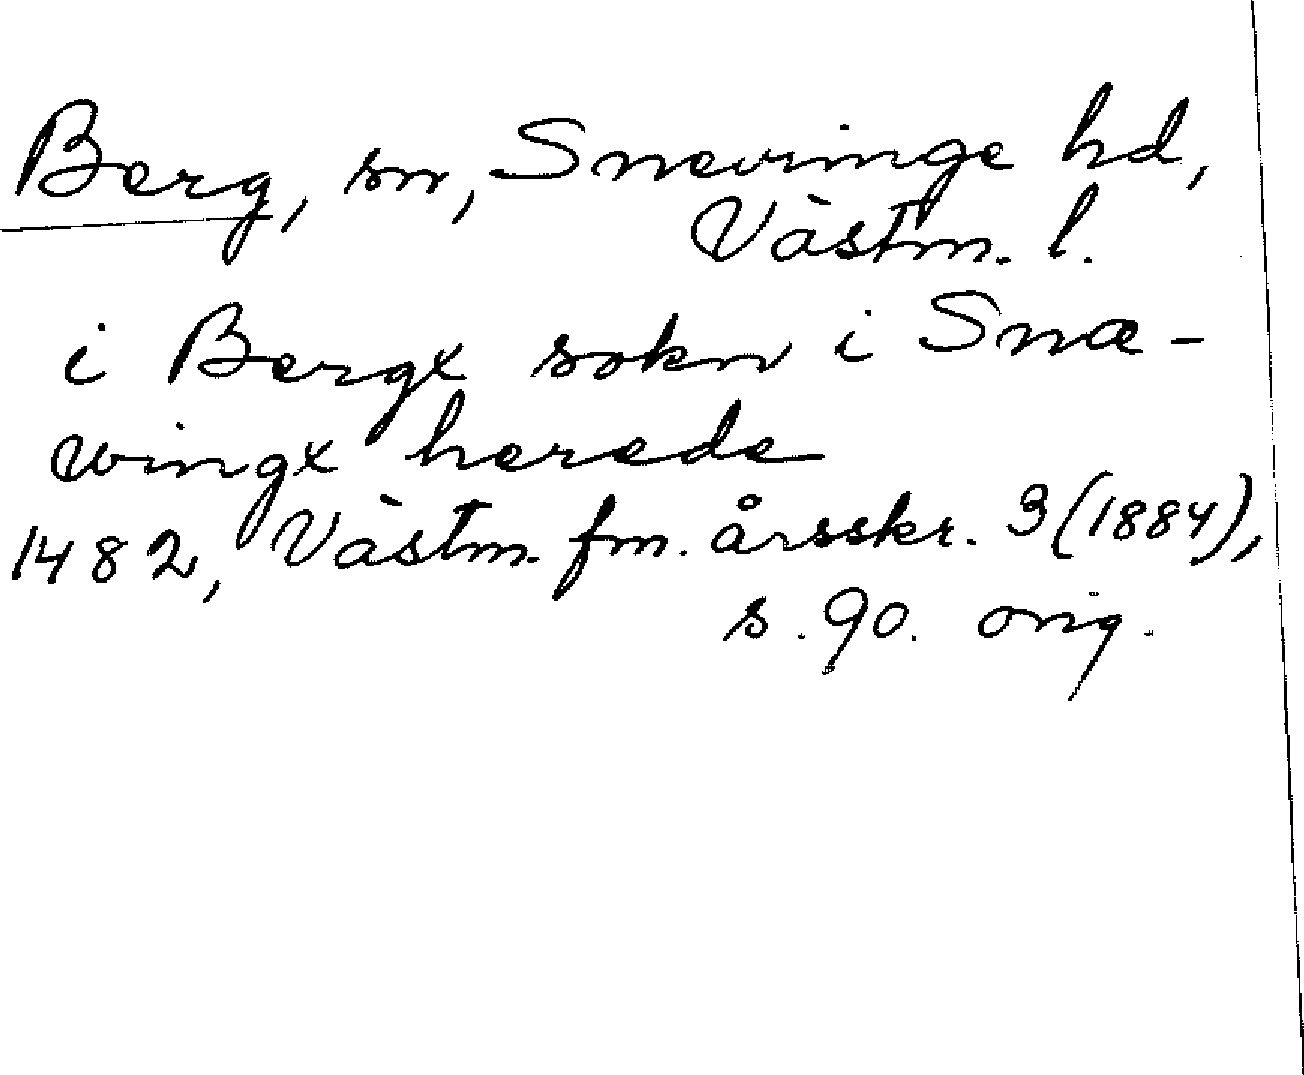 Berg, sn, Snevringe hd,
Västm. l.
i Bergx sokn i Snæ-
wingx herede
1482, Västm. fm. årsskr. 3 (1884),
s. 90. orig.